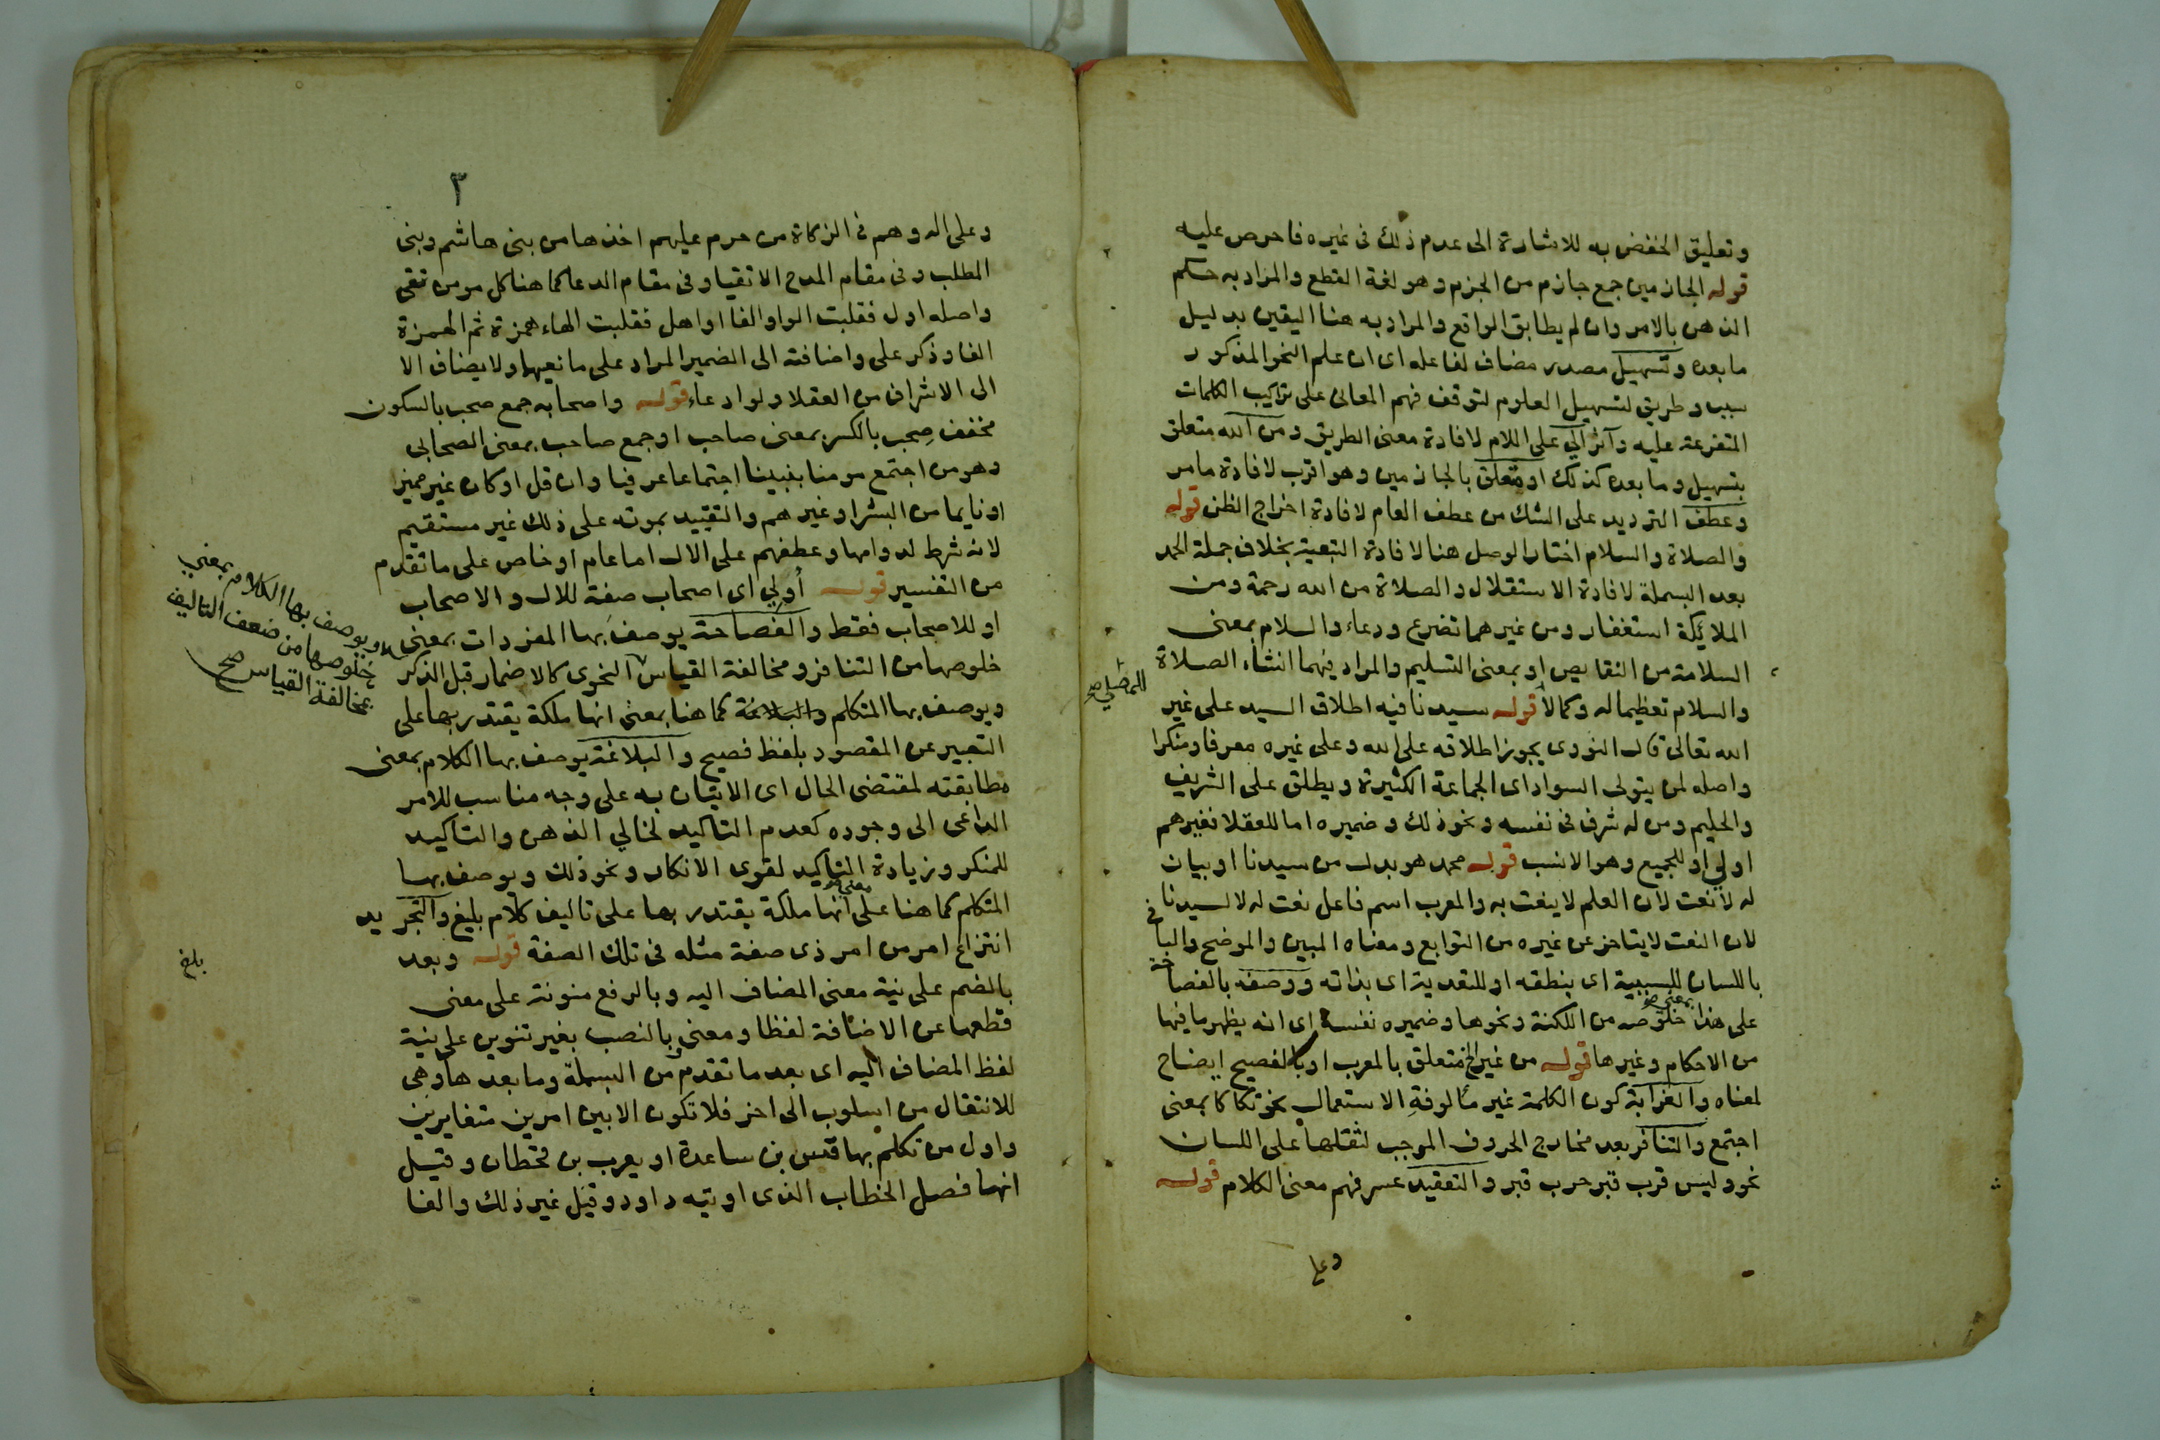 وتعليق الخفض به للاشارة الى عدم ذلك فى غيره فاحرص عليه
قوله الجازمين جمع جازم من الجزم وهو لغة القطع والمراد به حكم
الذهن بالامر وان لم يطابق الواقع والمراد به هنا اليقين بدليل
ما بعده وتسهيل مصدر مضاف لفاعله اى ان علم النحو المذكور
سبب وطريق لتسهيل العلوم لتوقف فهم المعانى على تراكيب الكلمات
المتفرعة عليه وآثر الى على اللام لافادة معنى الطريق ومن الله متعلق
بتسهيل وما بعده كذلك او متعلق بالجازمين وهو اقرب لافادة ما مر
وعطف الترديد على الشك من عطف العام لافادة اخراج الظن قوله
والصلاة والسلام اختار الوصل هنا لافادة التبعية بخلاف جملة الحمد
بعد البسملة لافادة الاستقلال والصلاة من الله رحمة ومن
الملايكة استغفار ومن غيرهما تضرع ودعاء والسلام بمعنى
السلامة من النقايص او بمعنى التسليم والمراد فيهما انشاء الصلاة
والسلام تعظيما له وكمالا قوله سيدنا فيه اطلاق السيد على غير
للمصلى صح
الله تعالى قال النووى يجوز اطلاقه على الله وعلى غيره معرفا ومنكرا
واصله لمن يتولى السواد اى الجماعة الكثيرة ويطلق على الشريف
والحليم ومن له شرف فى نفسه ونحو ذلك وضميره اما للعقلا فغيرهم
اولي او للجميع وهو الانسب قوله محمد هو بدل من سيدنا او بيان
له لا نعت لان العلم لا ينعت به والمعرب اسم فاعل نعت له لا لسيدنا
لان النعت لا يتاخر عن غيره من التوابع ومعناه المبين والموضح والبا فى
باللسان للسببية اى بنطقه او للتعدية اى بذاته ووصفه بالفصاحة
على هذا بمعنى خلوصه من اللكنة ونحوها وضميره نفسه اى انه يظهر ما فيها
من الاحكام وغيرها قوله من غير الخ متعلق بالمعرب او بالفصيح ايضاح
لمعناه والغرابة كون الكلمة غير مألوفة الاستعمال نحو تكاكا بمعنى
اجتمع والتنافر بعد مخارج الحروف الموجب لثقلها على اللسان
نحو وليس قرب قبر حرب قبر والتعقيد عسر فهم معنى الكلام قوله
وعلى
٣
وعلى اله وهم فى الزكاة من حرم عليهم اخذها من بنى هاشم وبنى
المطلب وفى مقام المدح الاتقيا وفى مقام الدعا كما هنا كل مومن تقى
واصله اول فقلبت الواو الفا او اهل فقلبت الهاء همزة ثم الهمزة
الفا وذكر على واضافته الى الضمير المراد على مانعيها ولا يضاف الا
الى الاشراف من العقلا ولو ادعاء قوله واصحابه جمع صحب بالسكون
مخفف صحب بالكسر بمعنى صاحب او جمع صاحب بمعنى الصحابى
وهو من اجتمع مومنا بنبينا اجتماعا عرفيا وان قل او كان غير مميز
او نايما من البشر او غيرهم والتقييد بموته على ذلك غير مستقيم
لانه شرط لدوامها وعطفهم على الال اما عام او خاص على ما تقدم
من التفسير قوله أولى اى اصحاب صفة للال والاصحاب
او للاصحاب فقط والفصاحة يوصف بها المفردات بمعنى
خلوصها من التنافر ومخالفة القياس النحوى كالاضمار قبل الذكر
ويوصف بها الكلام بمعنى
خلوصها من ضعف التاليف
بمخالفة القياس صح
ويوصف بها المتكلم والبلاغة كما هنا بمعنى انها ملكة يقتدر بها على
التعبير عن المقصود بلفظ فصيح والبلاغة يوصف بها الكلام بمعنى
مطابقته لمقتضى الحال اى الاتيان به على وجه مناسب للامر
الداعى الى وجوده كعدم التاكيد لخالي الذهن والتاكيد
للمنكر وزيادة التاكيد لقوى الانكار ونحو ذلك ويوصف بها
المتكلم كما هنا على معنى انها ملكة يقتدر بها على تاليف كلام بليغ والتجريد
انتزاع امر من امر ذى صفة مثله فى تلك الصفة قوله وبعد
بلغ
بالضم على نية معنى المضاف اليه وبالرفع منونة على معنى
قطعها عن الاضافة لفظا ومعنى وبالنصب بغير تنوين على نية
لفظ المضاف اليه اى بعد ما تقدم من البسملة وما بعدها وهى
للانتقال من اسلوب الى اخر فلا تكون الا بين امرين متغايرين
واول من تكلم بها قس بن ساعدة او يعرب بن قحطان وقيل
انها فصل الخطاب الذى اوتيه داود وقيل غير ذلك والفا